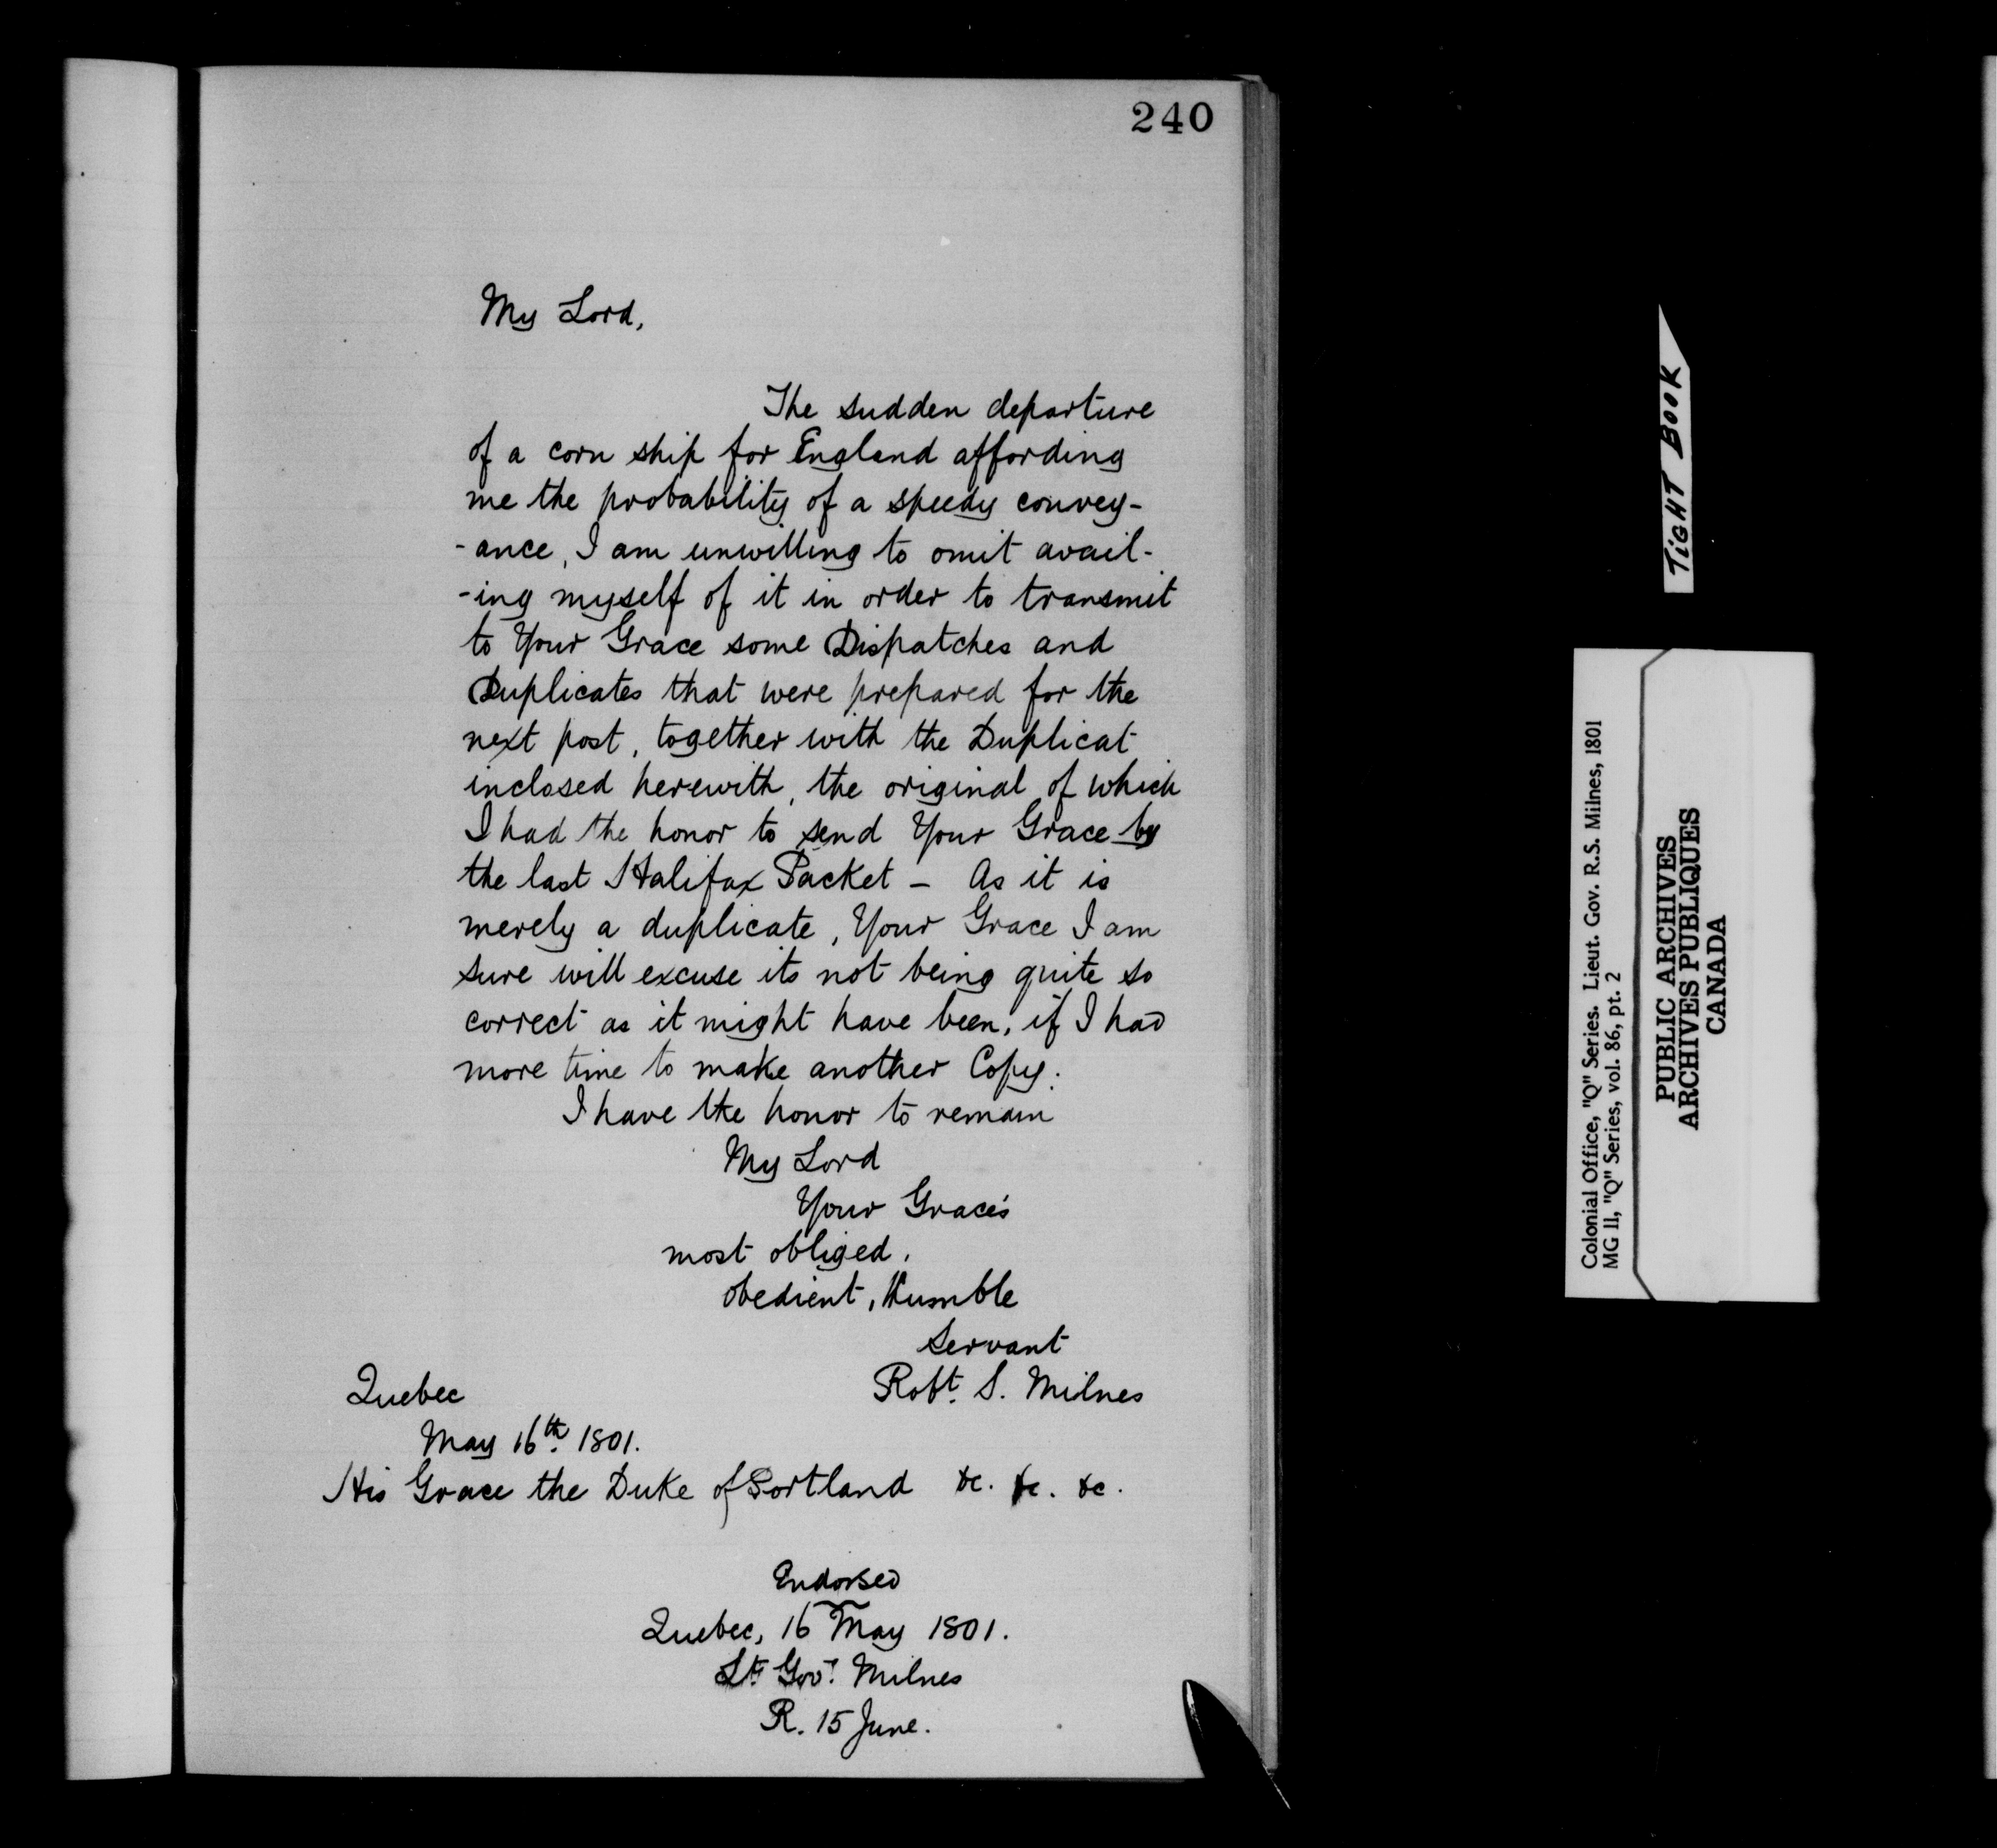 240
My Lord,
The sudden departure
of a corn ship for England affording
me the probability of a speedy convey-
-ance, I am unwilling to omit avail-
-ing myself of it in order to transmit
to Your Grace some Dispatches and
Duplicates that were prepared for the
next post, together with the Duplicat
inclosed herewith, the original of which
I had the honor to send Your Grace by
the last Halifax Packet – As it is
merely a duplicate, Your Grace I am
sure will excuse its not being quite so
correct as it might have been, if I had
more time to make another Copy.
I have the honor to remain
My Lord
Your Grace's
most obliged,
obedient, Humble
Servant
Robt. S. Milnes
Quebec
May 16th. 1801.
His Grace the Duke of Portland &c. &c. &c.
Endorsed
Quebec, 16 May 1801.
Lt. Govr. Milnes
R. 15 June.
TIGHT BOOK
Colonial Office, "Q" Series. Lieut. Gov. R.S. Milnes, 1801
MG 11, "Q" Series, vol. 86, pt. 2
PUBLIC ARCHIVES
ARCHIVES PUBLIQUES
CANADA